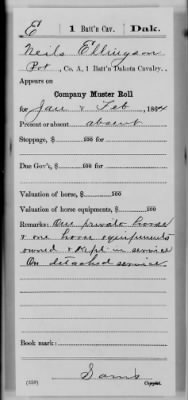 E 1 Batt'n Cav. Dak.
Neils Ellingson
Pvt, Co. A, 1 Batt'n Dakota Cavalry.
Appears on
Company Muster Roll
for Jan & Feb, 1864
Present or absent absent
Stoppage, $ 100 for
Due Gov't, $ 100 for
Valuation of horse, $ 100
Valuation of horse equipments, $ 100
Remarks: One private horse
& one horse equipments
owned & kept in service
On detached service.
Book mark:
Sams
(359) Copyist.